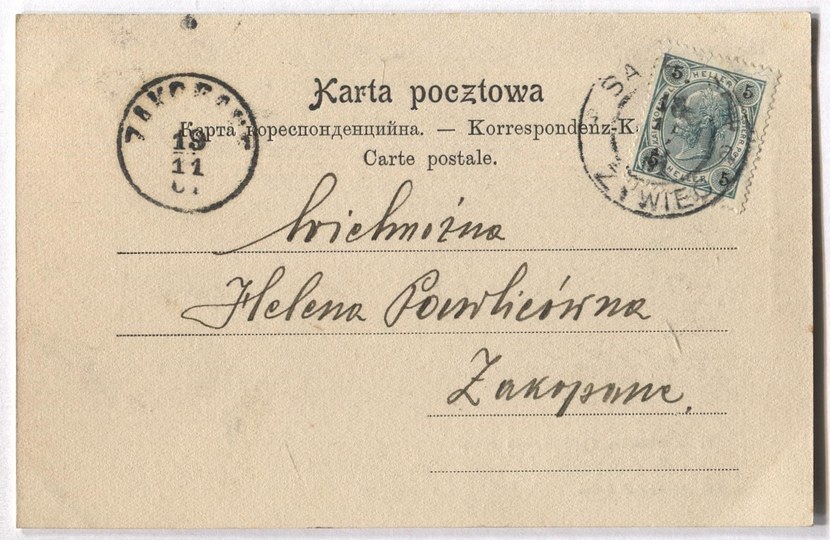 Karta pocztowa
Карта кореспонденцийна. — Korrespondenz-K
Carte postale.
ZAKOPANE
19
11
5 HELLER 5
5 HELLER 5
ŻYWIEC
Wielmożna
Helena Pawlicówna
Zakopane.